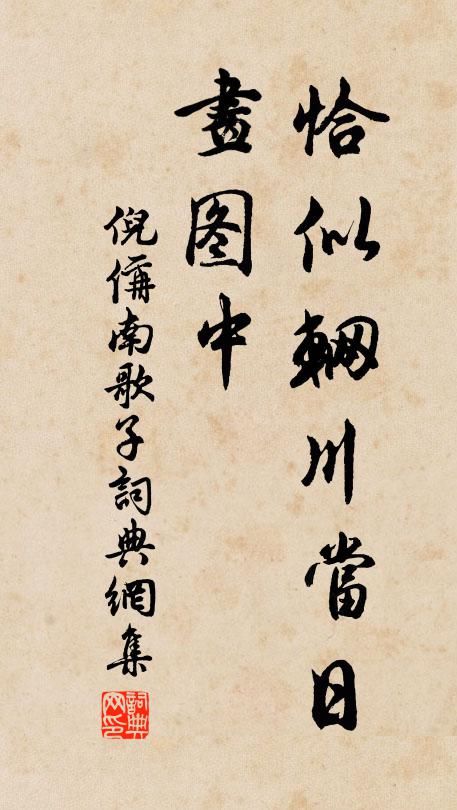 恰似輞川當日
畫图中
倪偁南歌子詞典網集
詞典
网印